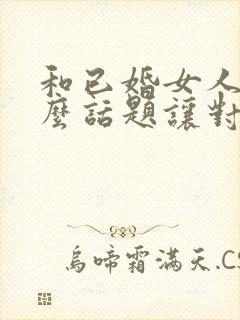 和已婚女人
麼話題讓對
烏啼霜滿天.CS